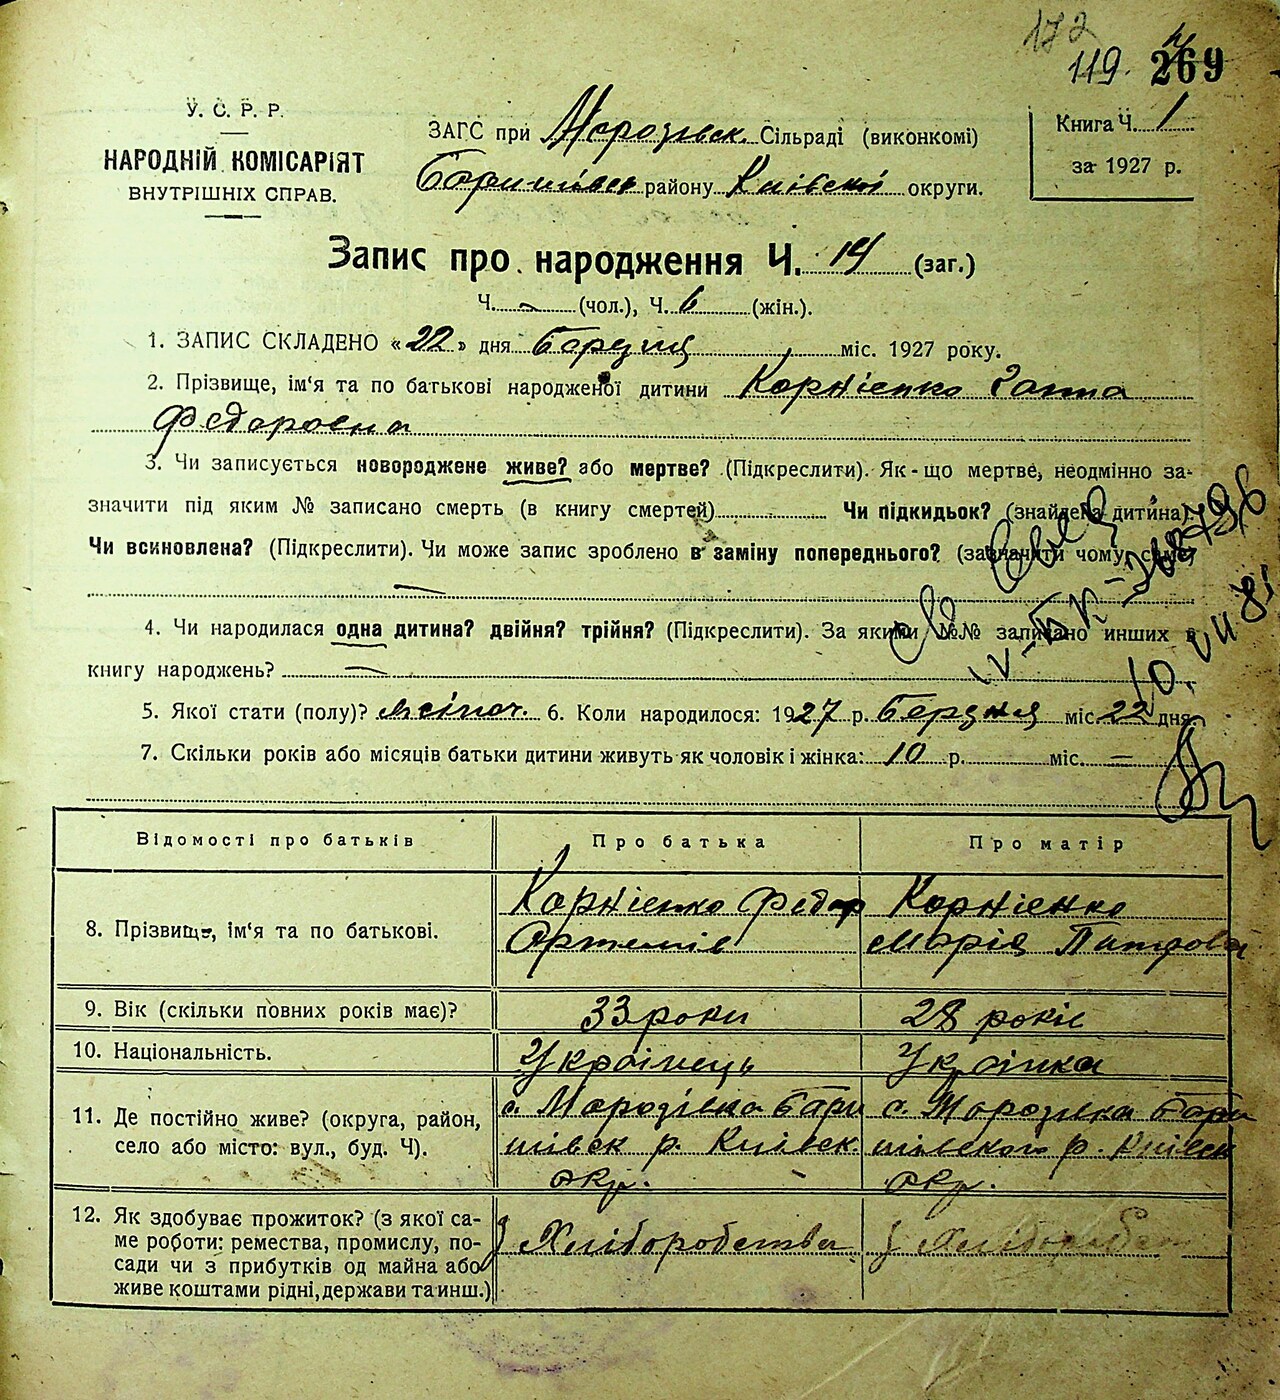 172
119. 269
У. С. Р. Р.
НАРОДНІЙ КОМІСАРІЯТ
ВНУТРІШНІХ СПРАВ.
ЗАГС при Морозівськ. Сільраді (виконкомі)
Баришівськ району Київської округи.
Книга Ч. 1
за 1927 р.
Запис про народження Ч. 14 (заг.)
Ч. - (чол.), Ч. 6 (жін.).
1. ЗАПИС СКЛАДЕНО «22» дня Березня міс. 1927 року.
2. Прізвище, ім'я та по батькові народженої дитини Корнієнко Ганна
Федоровна
3. Чи записується новороджене живе? або мертве? (Підкреслити). Як-що мертве, неодмінно за-
значити під яким № записано смерть (в книгу смертей) Чи підкидьок? (знайдена дитина).
Чи всиновлена? (Підкреслити). Чи може запис зроблено в заміну попереднього? (зазначити чому саме)
4. Чи народилася одна дитина? двійня? трійня? (Підкреслити). За якими №№ записано инших в
книгу народжень?
5. Якої стати (полу)? жіноч. 6. Коли народилося: 1927 р. Березня міс. 22 дня.
7. Скільки років або місяців батьки дитини живуть як чоловік і жінка: 10 р. міс. —
IV-БК-
10. VII 81
Відомості про батьків
Про батька
Про матір
8. Прізвище, ім'я та по батькові.
Корнієнко Федор
Артемів
Корнієнко
Марія Питрова
9. Вік (скільки повних років має)?
33 роки
28 років
10. Національність.
Українець
Українка
11. Де постійно живе? (округа, район,
село або місто: вул., буд. Ч).
с. Морозівка Бари
шівськ р. Київськ.
окр.
с. Морозівка Бари
шівського р. Київськ
окр.
12. Як здобуває прожиток? (з якої са-
ме роботи: ремества, промислу, по-
сади чи з прибутків од майна або
живе коштами рідні, держави та инш.)
З Хліборобства
З Хлібороб